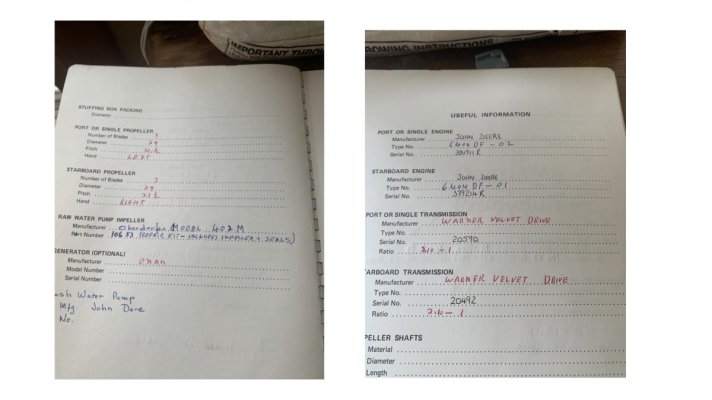 IMPORTANT THROW
STUFFING BOX PACKING
Diameter
PORT OR SINGLE PROPELLER
Number of Blades 3
Diameter 24
Pitch
Hand LEFT
STARBOARD PROPELLER
Number of Blades 3
Diameter 24
Pitch
Hand RIGHT
RAW WATER PUMP IMPELLER
Manufacturer Oberdorfer MODEL 407M
Part Number (REPAIR KIT - INCLUDES IMPELLER + SEALS)
GENERATOR (OPTIONAL)
Manufacturer ONAN
Model Number
Serial Number
Water Pump
Mfg. John Dere
No.
ROWING INSTRUCTIONS
USEFUL INFORMATION
PORT OR SINGLE ENGINE
Manufacturer JOHN DEERE
Type No. 6404 DF - 02
Serial No.
STARBOARD ENGINE
Manufacturer JOHN DEERE
Type No. 6404 DF - 01
Serial No.
PORT OR SINGLE TRANSMISSION
Manufacturer WARNER VELVET DRIVE
Type No.
Serial No. 20590
Ratio
TARBOARD TRANSMISSION
Manufacturer WARNER VELVET DRIVE
Type No.
Serial No. 20492
Ratio
PELLER SHAFTS
Material
Diameter
Length